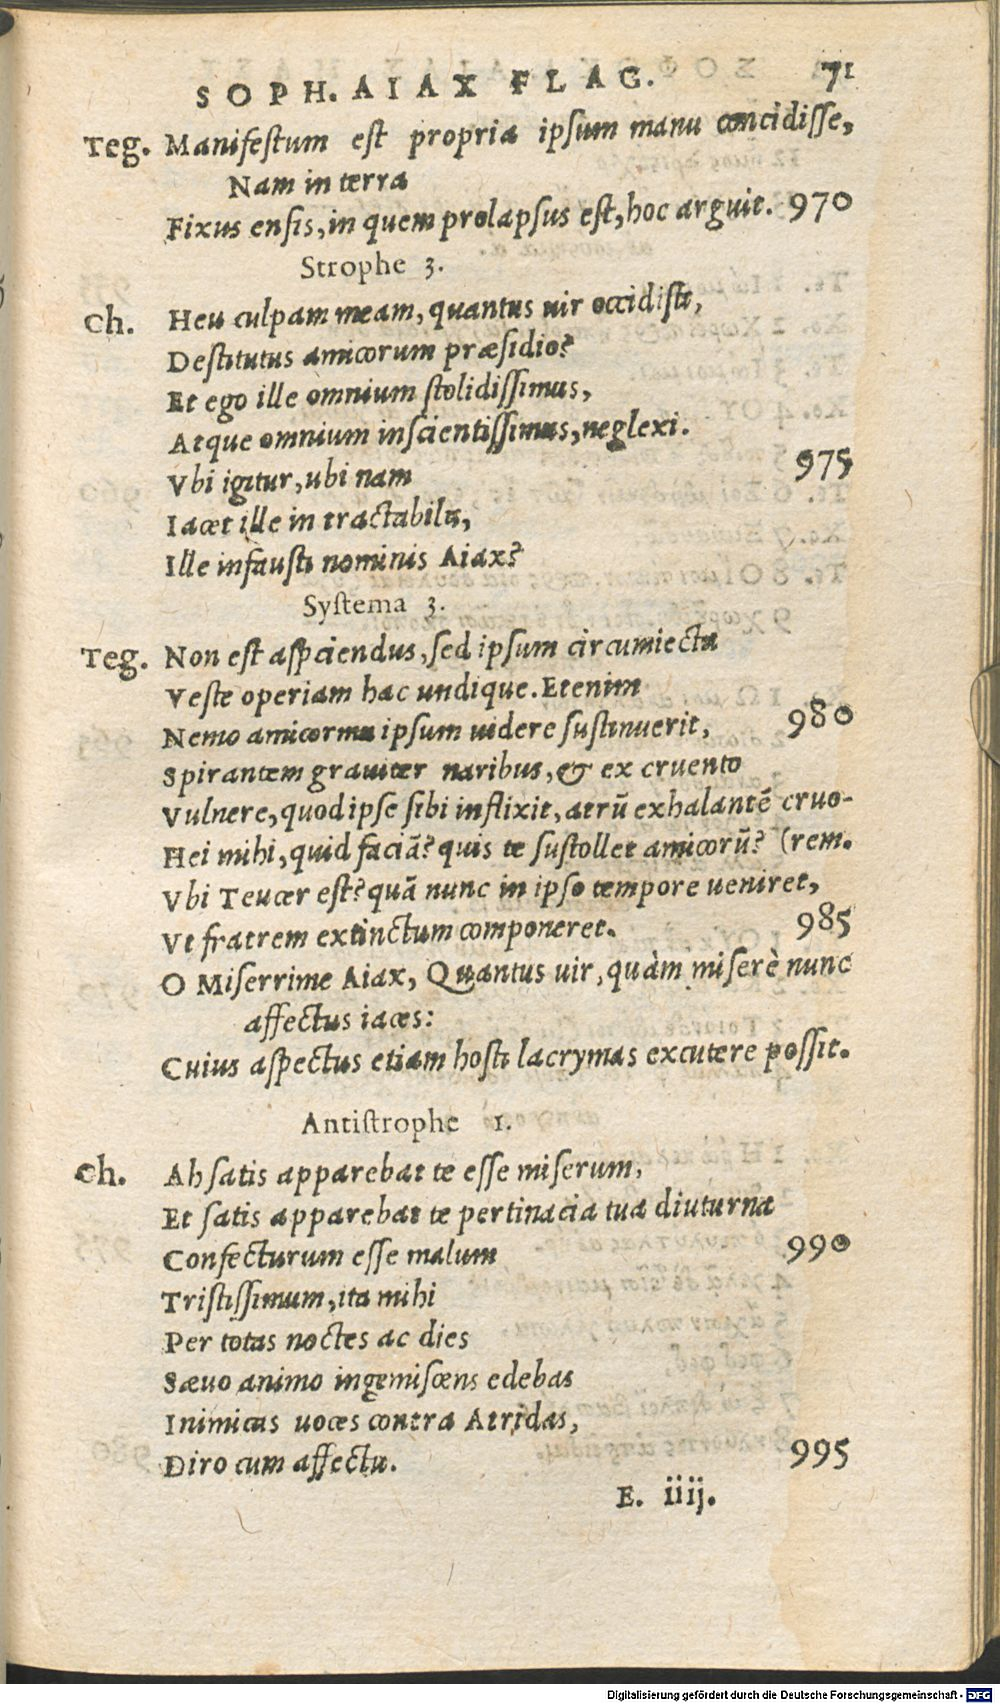 SOPH. AIAX FLAG. 71
Teg. Manifestum est propria ipsum manu concidisse,
Nam in terra
Fixus ensis, in quem prolapsus est, hoc arguit. 970
Strophe 3.
Ch. Heu culpam meam, quantus uir occidisti,
Destitutus amicorum præsidio?
Et ego ille omnium stolidissimus,
Atque omnium inscientissimus, neglexi.
Vbi igitur, ubi nam 975
Iacet ille in tractabilis,
Ille infausti nominis Aiax?
Systema 3.
Teg. Non est aspciendus, sed ipsum circumiectu
Veste operiam hac undique. Etenim
Nemo amicormu ipsum uidere sustinuerit, 980
Spirantem grauiter naribus, & ex cruento
Vulnere, quod ipse sibi inflixit, atrū exhalantē cruo-
Hei mihi, quid faciā? quis te sustollet amicorū? (rem.
Vbi Teucer est? quā nunc in ipso tempore ueniret,
Vt fratrem extinctum componeret. 985
O Miserrime Aiax, Quantus uir, quàm miserè nunc
affectus iaces:
Cuius aspectus etiam hosti lacrymas excutere possit.
Antistrophe 1.
Ch. Ah satis apparebat te esse miserum,
Et satis apparebat te pertinacia tua diuturna
Confecturum esse malum 990
Tristissimum, ita mihi
Per totas noctes ac dies
Sæuo animo ingemiscens edebas
Inimicas uoces contra Atridas,
Diro cum affectu. 995
E. iiij.
Digitalisierung gefördert durch die Deutsche Forschungsgemeinschaft - DFG